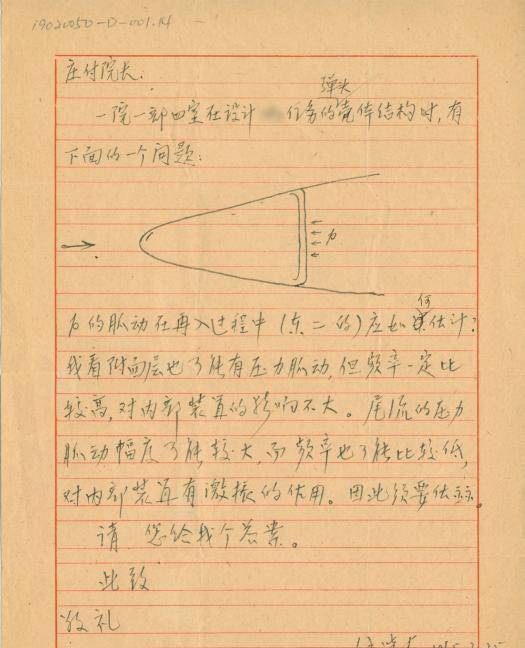 19020050-D-001.14
庄付院长:
弹头
一院一部四室在设计 任务的壳体结构时,有
下面的一个问题:
p
p的脉动在再入过程中(东二的)应如何估计?
我看附面层也可能有压力脉动,但频率一定比
较高,对内部装置的影响不大。尾流的压力
脉动幅度可能较大,而频率也可能比较低,
对内部装置有激振的作用。因此须要估计。
请 您给我个答案。
此致
敬礼